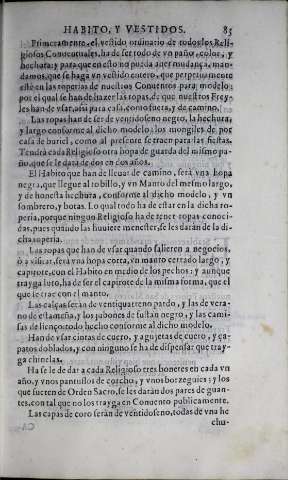 HABITO, Y VESTIDOS. 85
Primeramente, el vestido ordinario de todos los Reli-
giosos Conuentuales, ha de ser todo de vn paño, color, y
hechura: y para que en esto no pueda auer mudança, man-
damos, que se haga vn vestido entero, que perpetuamente
esté en las roperias de nuestros Conuentos para modelo:
por el qual se han de hazer las ropas, de que nuestros Freyles
han de vsar, assi para casa, como fuera, y de camino.
Las ropas han de ser de ventidoseno negro, la hechura,
y largo conforme al dicho modelo: los mongiles de por
casa de buriel, como al presente se traen para las fiestas.
Tendrá cada Religioso otra hopa de guarda del mismo pa-
ño, que se le dará de dos en dos años.
El Habito que han de lleuar de camino, será vna hopa
negra, que llegue al tobillo, y vn Manto del mesmo largo,
y de honesta hechura, conforme al dicho modelo, y vn
sombrero, y botas. Lo qual todo ha de estar en la dicha ro-
peria, porque ningun Religioso ha de tener ropas conoci-
das, pues quando las huuiere menester, se les darán de la di-
cha roperia.
Las ropas que han de vsar quando salieren a negocios,
ò a visitar, será vna hopa corta, vn manto cerrado largo, y
capirote, con el Habito en medio de los pechos: y aunque
trayga luto, ha de ser el capirote de la misma forma, que el
que se trae con el manto.
Las calças serán de ventiquatreno pardo, y las de vera-
no de estameña, y los jubones de fustan negro, y las cami-
sas de lienço: todo hecho conforme al dicho modelo.
Han de vsar cintas de cuero, y agujetas de cuero, y ça-
patos doblados, y con ninguno se ha de dispensar que tray-
ga chinelas.
Ha se le de dar a cada Religioso tres bonetes en cada vn
año, y vnos pantuflos de corcho, y vnos borzeguies: y los
que fueren de Orden Sacro, se les darán dos pares de guan-
tes, con tal que no los trayga en Conuento publicamente.
Las capas de coro serán de ventidoseno, todas de vna he
chu-